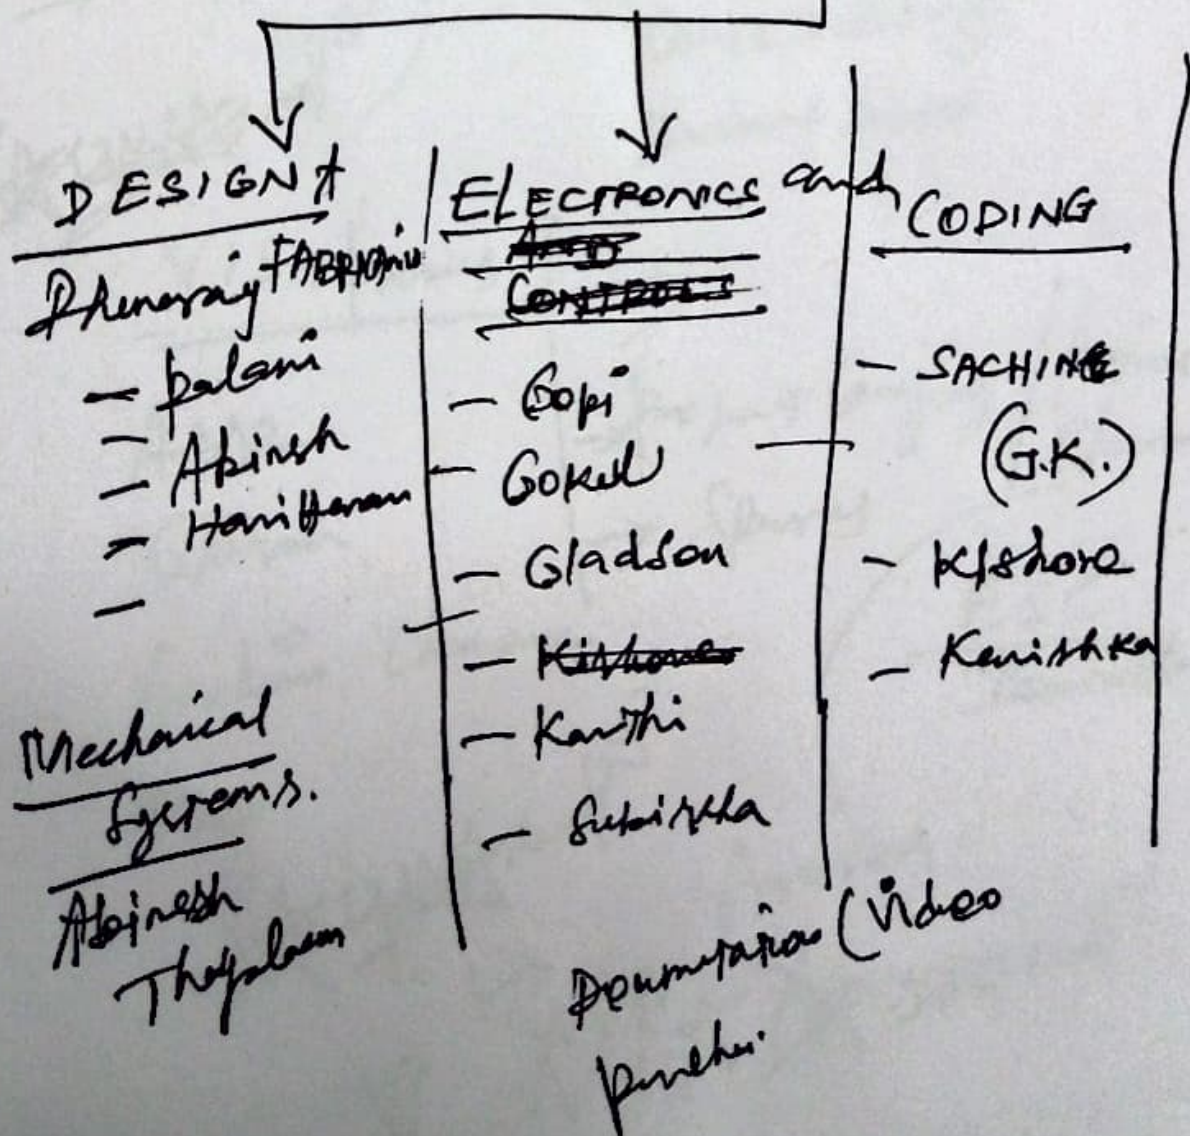 DESIGN &
FABRICATION
Dhanaraj
- Palani
-
- Abinesh
- Hariharan
-
Mechanical
Systems.
Abinesh
ELECTRONICS and
AND
CONTROLS
- Gopi
- Gokul
- Gladson
- Kishore
- Kavithi
- Subiksha
CODING
- SACHIN
(G.K.)
- Kishore
- Kanishka
(Video